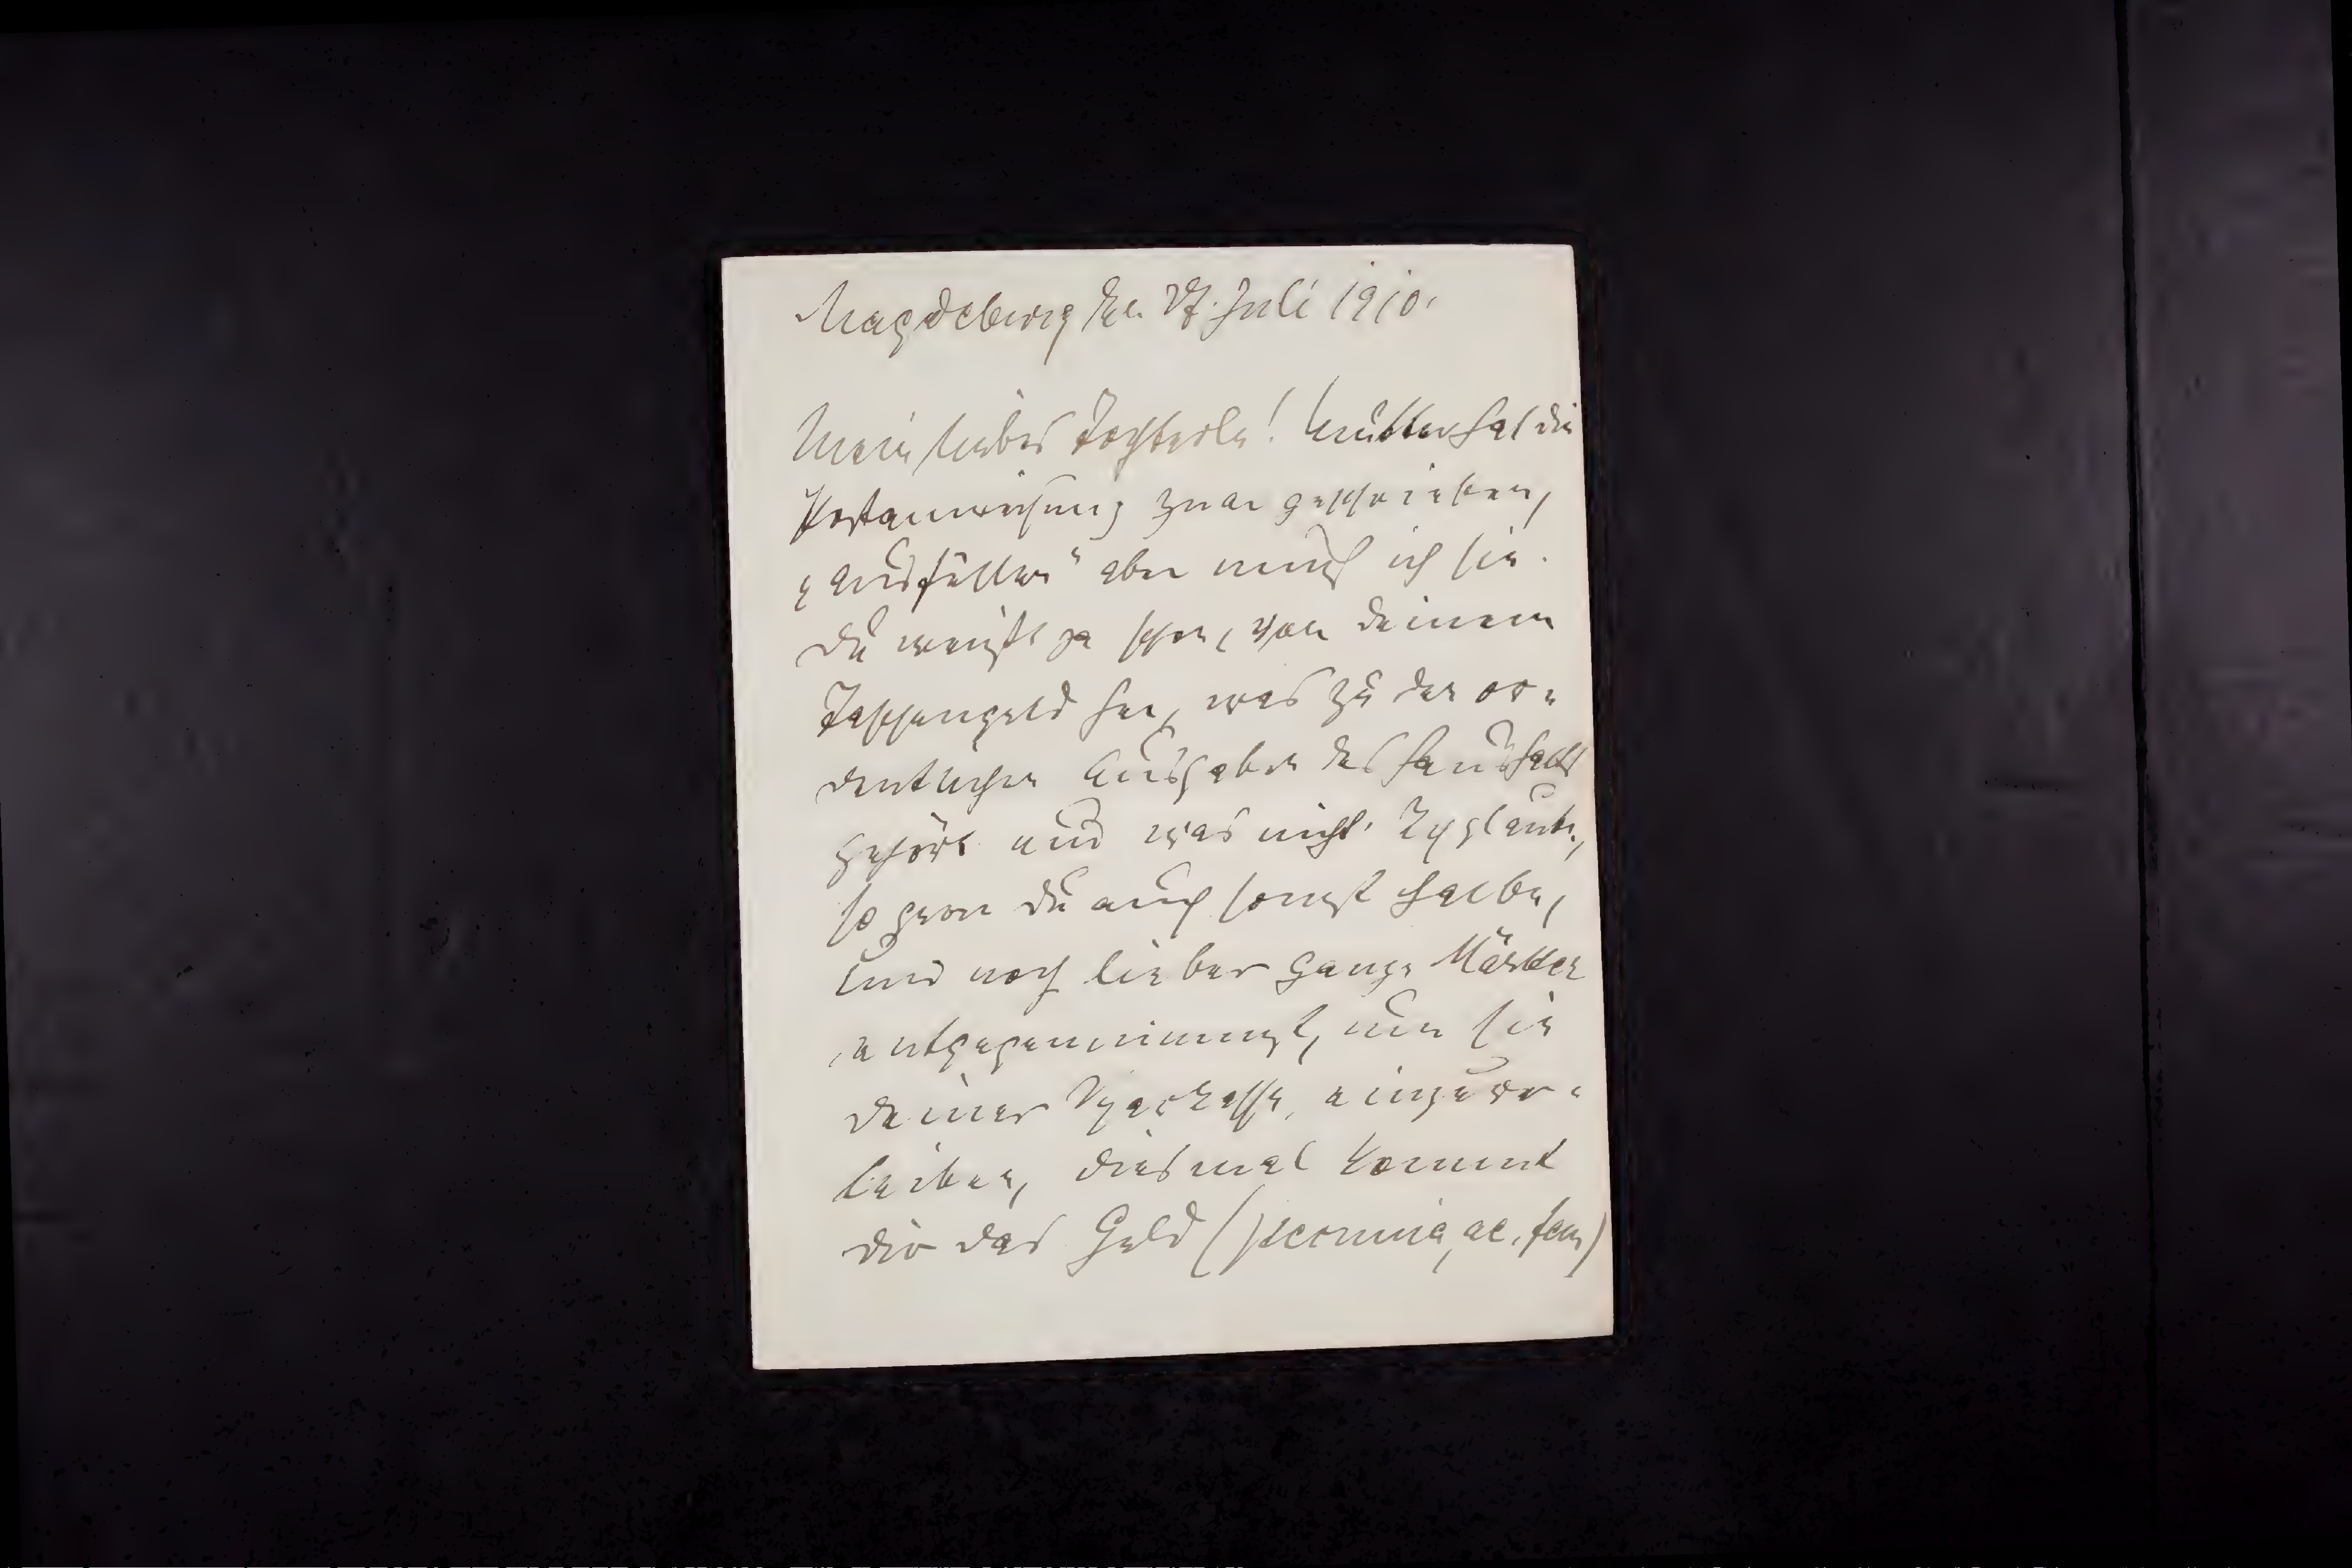 Magdeburg den 27. Juli 1910.
Mein liebes Tochterle! Mutter hat die
Postanweisung zwar geschrieben,
„ausfüllen“ aber muß ich sie.
Du weißt ja schon, von deinem
Taschengeld her, was zu den or-
dentlichen Ausgaben des Haushalts
gehört und was nicht. Ich glaube,
so gern du auch sonst halbe,
und noch lieber ganze Märker
entgegennimmst, um sie
deiner Sparkasse einzuver-
leiben, diesmal kommt
dir das Geld (pecunia, ae, fem)